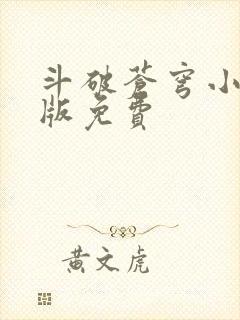 斗破苍穹小
版免费
黄文虎